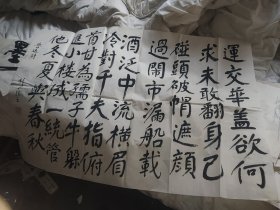 運交華盖欲何
求未敢翻身已
碰頭破帽遮顔
過閙市漏船載
酒泛中流横眉
冷對千夫指俯
首甘為孺子牛躲
進小楼成一統管
他冬夏与春秋
墨